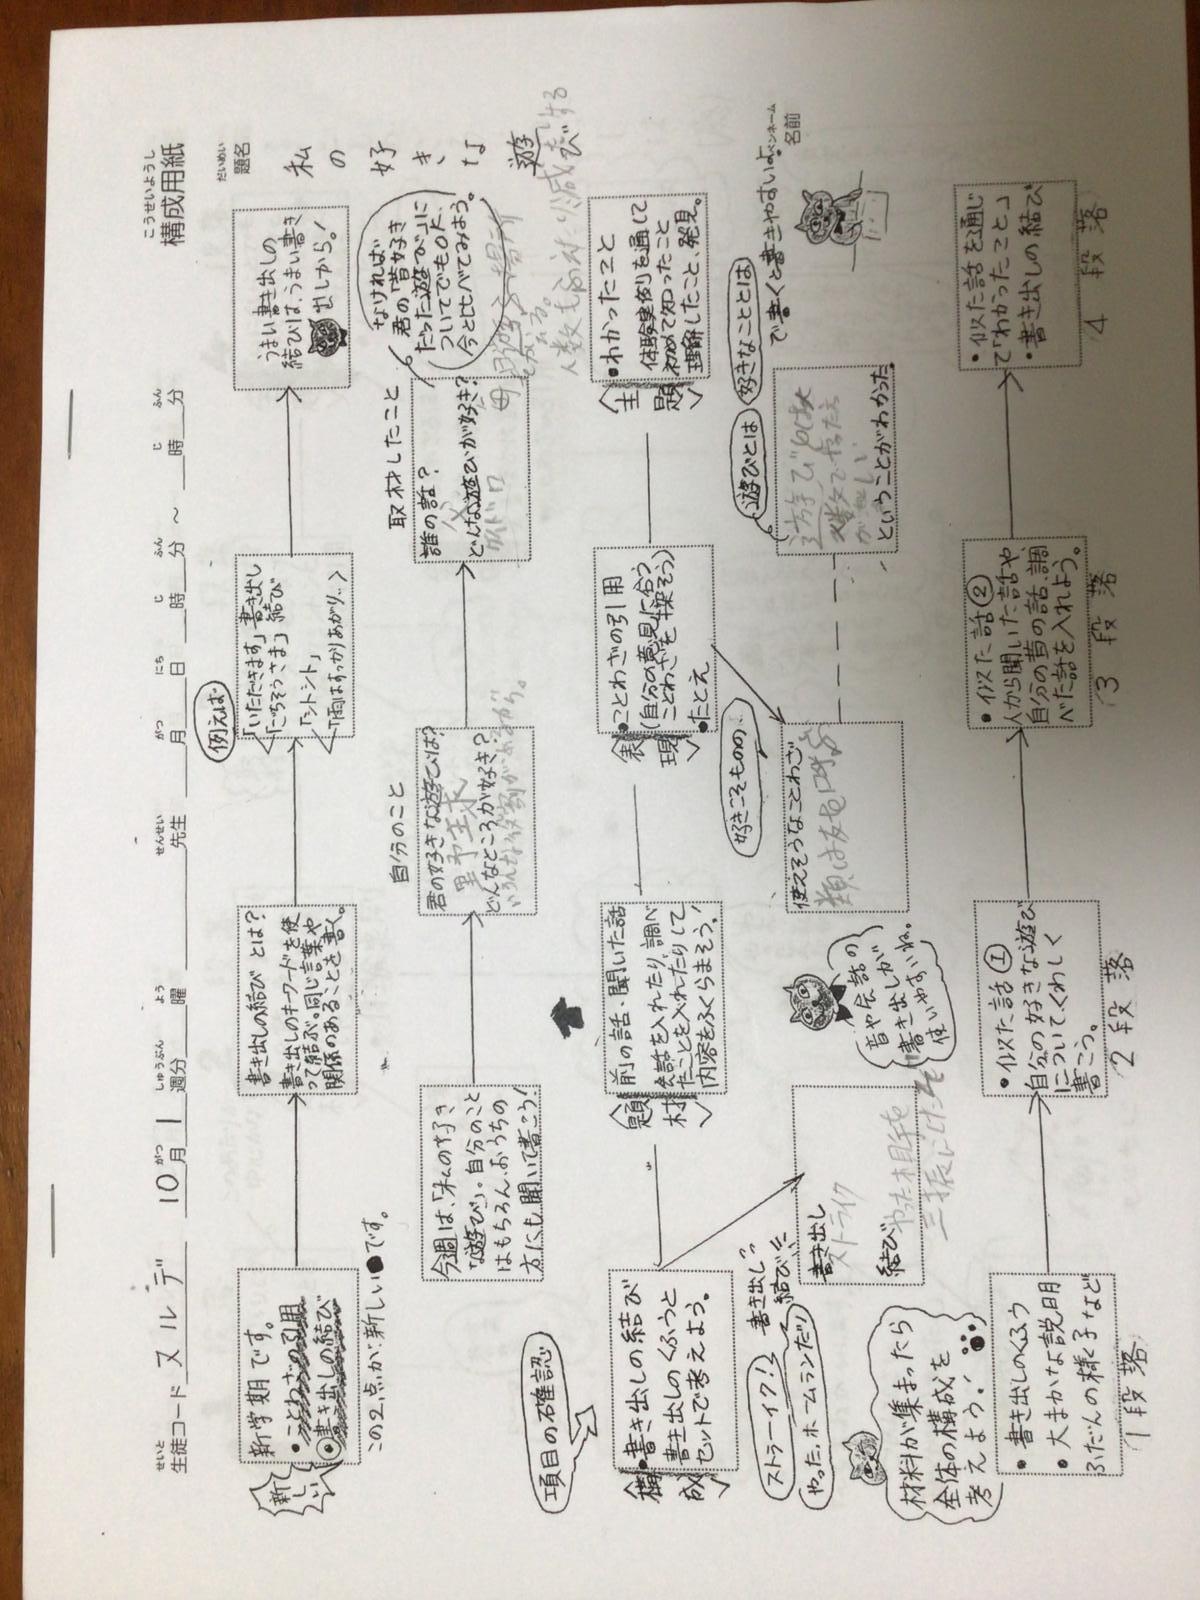 こうせいようし
構成用紙
せいと
生徒コード ヌルデ 10月 1週分 曜 先生 月 日 時 分 ～ 時 分
がつ しゅうぶん よう せんせい がつ にち じ ふん じ ふん
だいめい
題名
私の好きな遊び
新しい
新学期です。
●書き出しの結び
この2点が、新しい●です。
書き出しの結びとは?
書き出しのキーワードを使
って結ぶ。同じ言葉や
関係のあることを書く。
例えば
「いただきます」書き出し
「ごちそうさま」結び
「シトシト」
「雨はすっかりあがり…」
うまい書き出しの
結びは、うまい書き
出しから!
今週は、「私の好き
な遊び」。自分のこと
はもちろん、おうちの
方にも聞いて書こう!
自分のこと
君の好きな遊びは?
野球
どんなところが好き?
いろんな役割があるから。
取材したこと
誰の話?
父 母
どんな遊びが好き?
なければ
君の「昔好き
だった遊び」に
ついてでもOK、
今と比べてみよう。
項目の確認
〈構成〉
●書き出しの結び
書き出しのくふうと
セットで考えよう。
〈題材〉
前の話・聞いた話
会話を入れたり、調べ
たことを入れたりして
内容をふくらまそう!
〈表現〉
●ことわざの引用
(自分の意見に合う
ことわざを探そう)
●たとえ
〈主題〉
●わかったこと
体験実例を通して
初めて知ったこと
理解したこと、発見。
ストラーイク! 書き出し
やった。ホームランだ! 結び
書き出し
ストライク
結び
やった相手を
三振にしたぞ
音や会話の
書き出しが
使いやすいね。
好きこそものの、
使えそうなことわざ
類は友を呼ぶ
遊びとは
好きなこととは
で書くと書きやすいよ。
ということがわかった
ペンネーム
名前
材料が集まったら
全体の構成を
考えよう!
●書き出しのくふう
●大まかな説明
ふだんの様子など
1段落
●似た話①
自分の好きな遊び
について、くわしく
書こう。
2段落
●似た話②
人から聞いた話や
自分の昔の話、調
べた話を入れよう。
3段落
●似た話を通じ
て「わかったこと」
●書き出しの結び
4段落